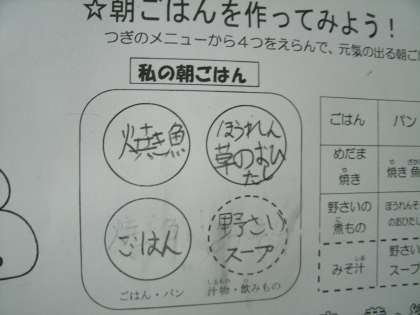 ☆朝ごはんを作ってみよう！
つぎのメニューから4つをえらんで、元気の出る朝ご
私の朝ごはん
焼き魚
ほうれん
草のおひ
たし
ごはん
野さい
スープ
ごはん・パン
汁物・飲みもの
ごはん
パン
めだま
焼き
焼き魚
野さいの
煮もの
ほうれんそ
のおひたし
みそ汁
野さい
スープ